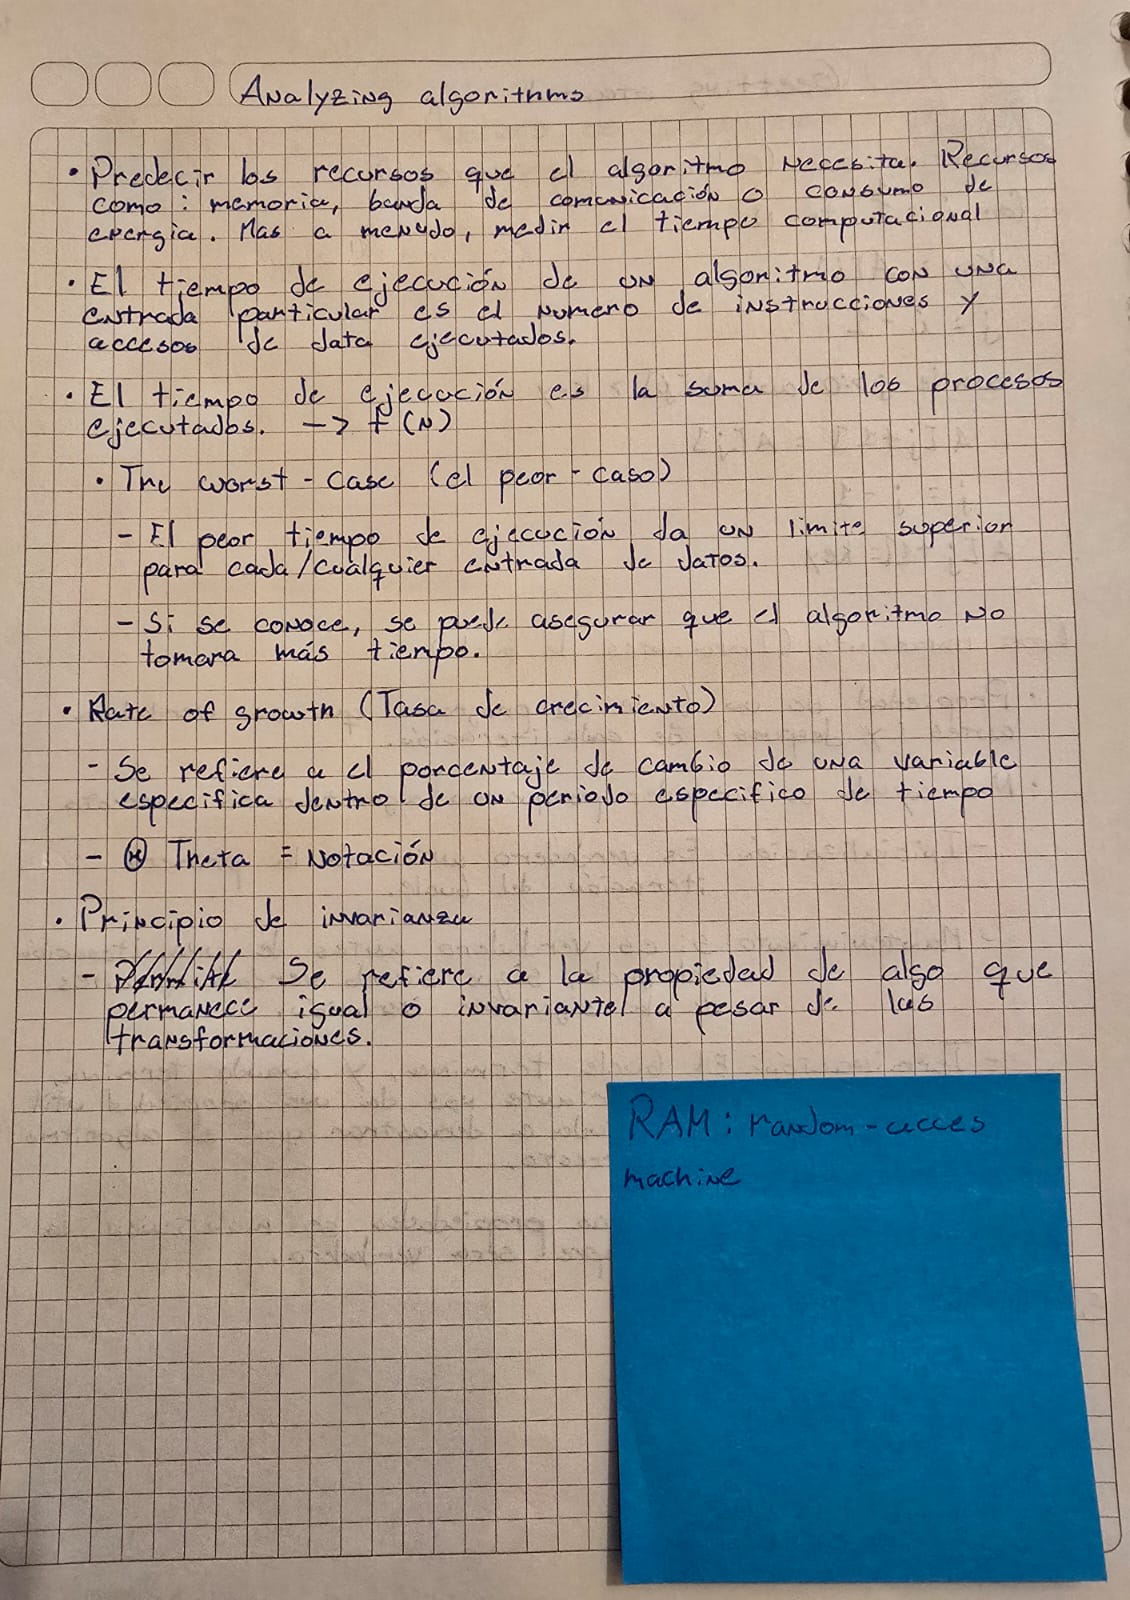 Analyzing algorithms
• Predecir los recursos que el algoritmo necesita. Recursos
como: memoria, banda de comunicación o consumo de
energia. Mas a menudo, medir el tiempo computacional
• El tiempo de ejecución de un algoritmo con una
entrada particular es el numero de instrucciones y
accesos de data ejecutados.
• El tiempo de ejecución es la suma de los procesos
ejecutados. -> f(N)
• The worst-case (el peor-caso)
- El peor tiempo de ejecución da un limite superior
para cada/cualquier entrada de datos.
- Si se conoce, se puede asegurar que el algoritmo no
tomara más tiempo.
• Rate of growth (Tasa de crecimiento)
- Se refiere a el porcentaje de cambio de una variable
especifica dentro de un periodo especifico de tiempo
- Θ Theta = Notación
• Principio de invarianza
- Se refiere a la propiedad de algo que
permanece igual o invariante a pesar de las
transformaciones.
RAM: random-acces
machine